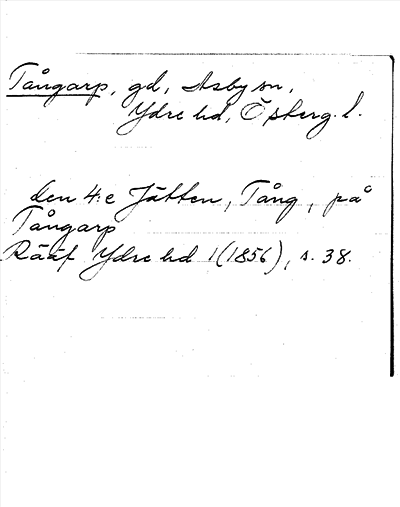 Tångarp, gd, Asby sn,
Ydre hd, Österg. l.
den 4:e Jätten, Tång, på
Tångarp
Rääf Ydre hd 1(1856), s. 38.